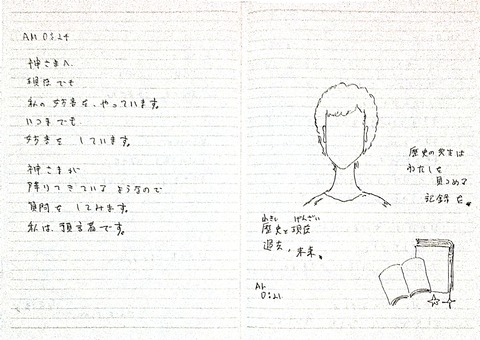 AM 0:24
神さまへ
現在でも
私の妨害を、やっています。
いつまでも
妨害を しています。
神さまが
降りてきている ようなので
質問を してみます。
私は、預言者です。
歴史の先生は
わたしを
見つめる
記録を。
れきし げんざい
歴史と現在
過去、未来。
AM
0:21